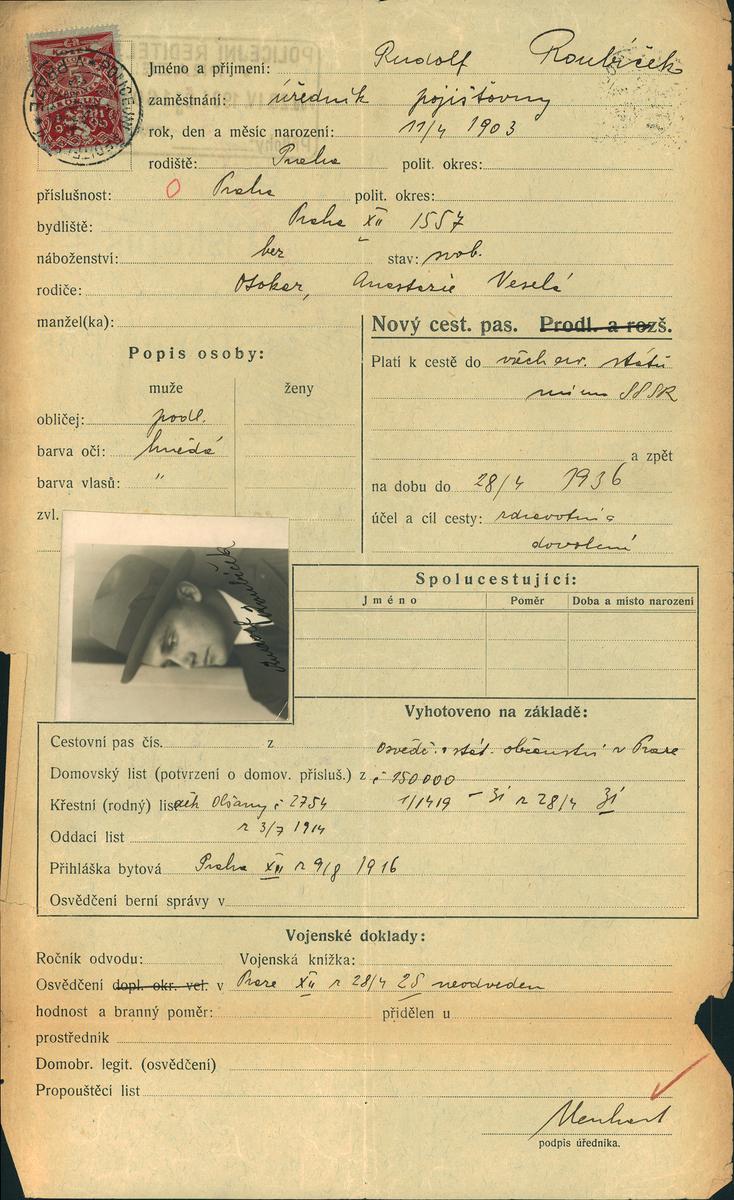 Jméno a přijmení: Rudolf Roubíček
zaměstnání: úředník pojišťovny
rok, den a měsíc narození: 11/4 1903
rodiště: Praha polit. okres:
příslušnost: O Praha polit. okres:
bydliště: Praha XII 1557
náboženství: bez stav: svob.
rodiče: Otokar, Anastazie Veselá
manžel(ka):
Nový cest. pas. Prodl. a rozš.
Popis osoby:
muže ženy
obličej: podl.
barva očí: hnědá
barva vlasů: "
zvl.
Platí k cestě do všech evr. států
mimo SSSR
a zpět
na dobu do 28/4 1936
účel a cíl cesty: zdravotní a
dovolená
Rudolf Roubíček
Spolucestující:
Jméno Poměr Doba a místo narození
Vyhotoveno na základě:
Cestovní pas čís. z osvědč. stát. občanství v Praze
Domovský list (potvrzení o domov. přísluš.) z č 150000
Křestní (rodný) list Olšany č 2754 1/1419 - 31 z 28/4 31
z 3/7 1914
Oddací list
Přihláška bytová Praha XII z 9/8 1916
Osvědčení berní správy v
Vojenské doklady:
Ročník odvodu: Vojenská knížka:
Osvědčení dopl. okr. vel. v Praze XII z 28/4 25 neodveden
hodnost a branný poměr: přidělen u
prostředník
Domobr. legit. (osvědčení)
Propouštěcí list
Menhart
podpis úředníka.